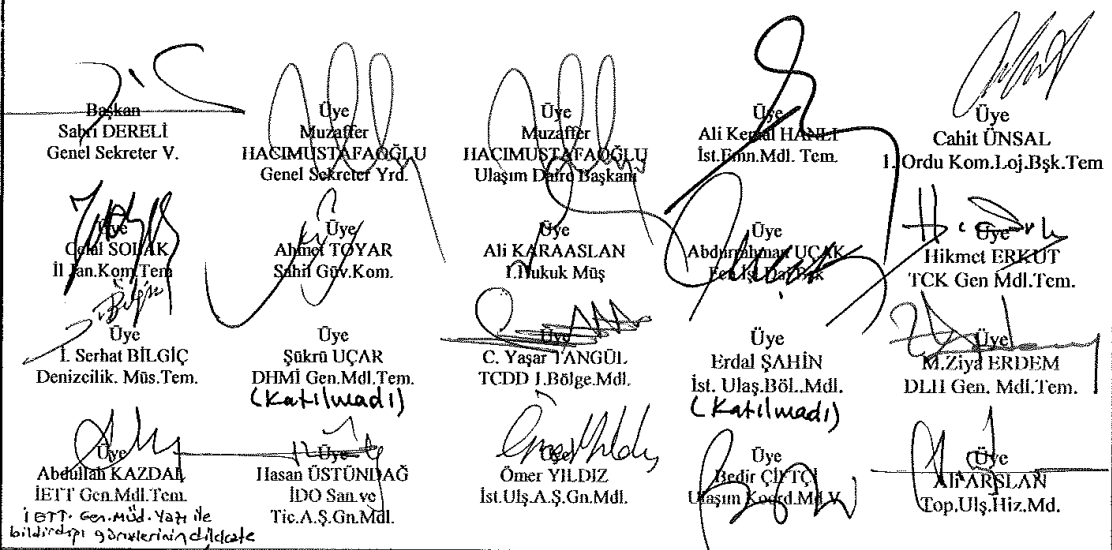 Başkan
Sabri DERELİ
Genel Sekreter V.
Üye
Muzaffer
HACIMUSTAFAOĞLU
Genel Sekreter Yrd.
Üye
Muzaffer
HACIMUSTAFAOĞLU
Ulaşım Daire Başkanı
Üye
Ali Kemal HANLI
İst.Emn.Mdl. Tem.
Üye
Cahit ÜNSAL
1. Ordu Kom.Loj.Bşk.Tem
Üye
Celal SOLAK
İl Jan.Kom.Tem
Üye
Ahmet TOYAR
Sahil Güv.Kom.
Üye
Ali KARAASLAN
1.Hukuk Müş
Üye
Abdurrahman UÇAK
Fen İşl.Dai.Bşk
Üye
Hikmet ERKUT
TCK Gen Mdl.Tem.
Üye
İ. Serhat BİLGİÇ
Denizcilik. Müs.Tem.
Üye
Şükrü UÇAR
DHMİ Gen.Mdl.Tem.
(Katılmadı)
Üye
C. Yaşar TANGÜL
TCDD 1.Bölge.Mdl.
Üye
Erdal ŞAHİN
İst. Ulaş.Böl..Mdl.
(Katılmadı)
Üye
M.Ziya ERDEM
DLH Gen. Mdl.Tem.
Üye
Abdullah KAZDAL
İETT Gen.Mdl.Tem.
İETT. Gen.Müd. Yazı ile
bildirdiği görüşlerinin
Üye
Hasan ÜSTÜNDAĞ
İDO San.ve
Tic.A.Ş.Gn.Mdl.
Ömer YILDIZ
İst.Ulş.A.Ş.Gn.Mdl.
Üye
Bedir ÇİFTÇİ
Ulaşım Koord.Md.V.
Üye
Ali ARSLAN
Top.Ulş.Hiz.Md.